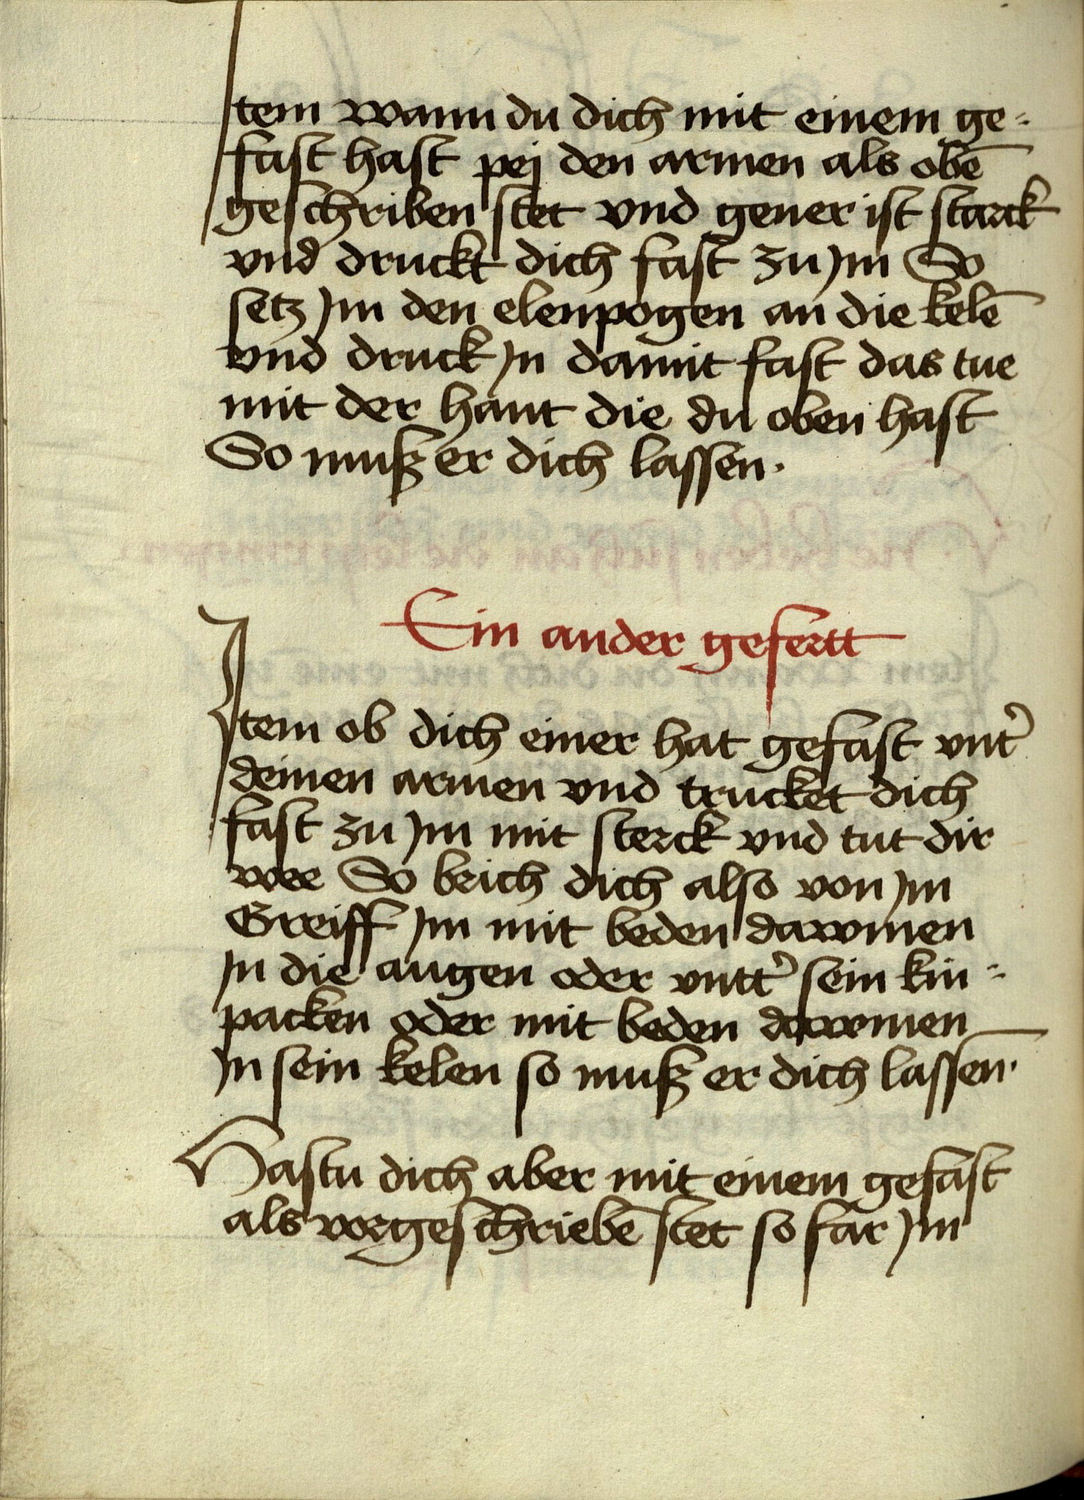 Item wann du dich mit einem ge-
fast hast pej den armen als obē
geschriben stet vnd gener ist starck
vnd druckt dich fast zu jm So
setz jm den elenpogen an die kelē
vnd druck jn damit fast das tue
mit der hant die du oben hast
So muß er dich lassen.
Ein ander gefertt
Item ob dich einer hat gefast vnt̛
deinen armen vnd trucket dich
fast zu jm mit sterck vnd tut dir
wee So brich dich also von jm
Greiff jm mit beden dawmen
jn die augen oder vntt̛ sein kin-
packen oder mit beden dawmen
jn sein kelen so muß er dich lassen.
Hastu dich aber mit einem gefast
als vorgeschriebē stet so far jm